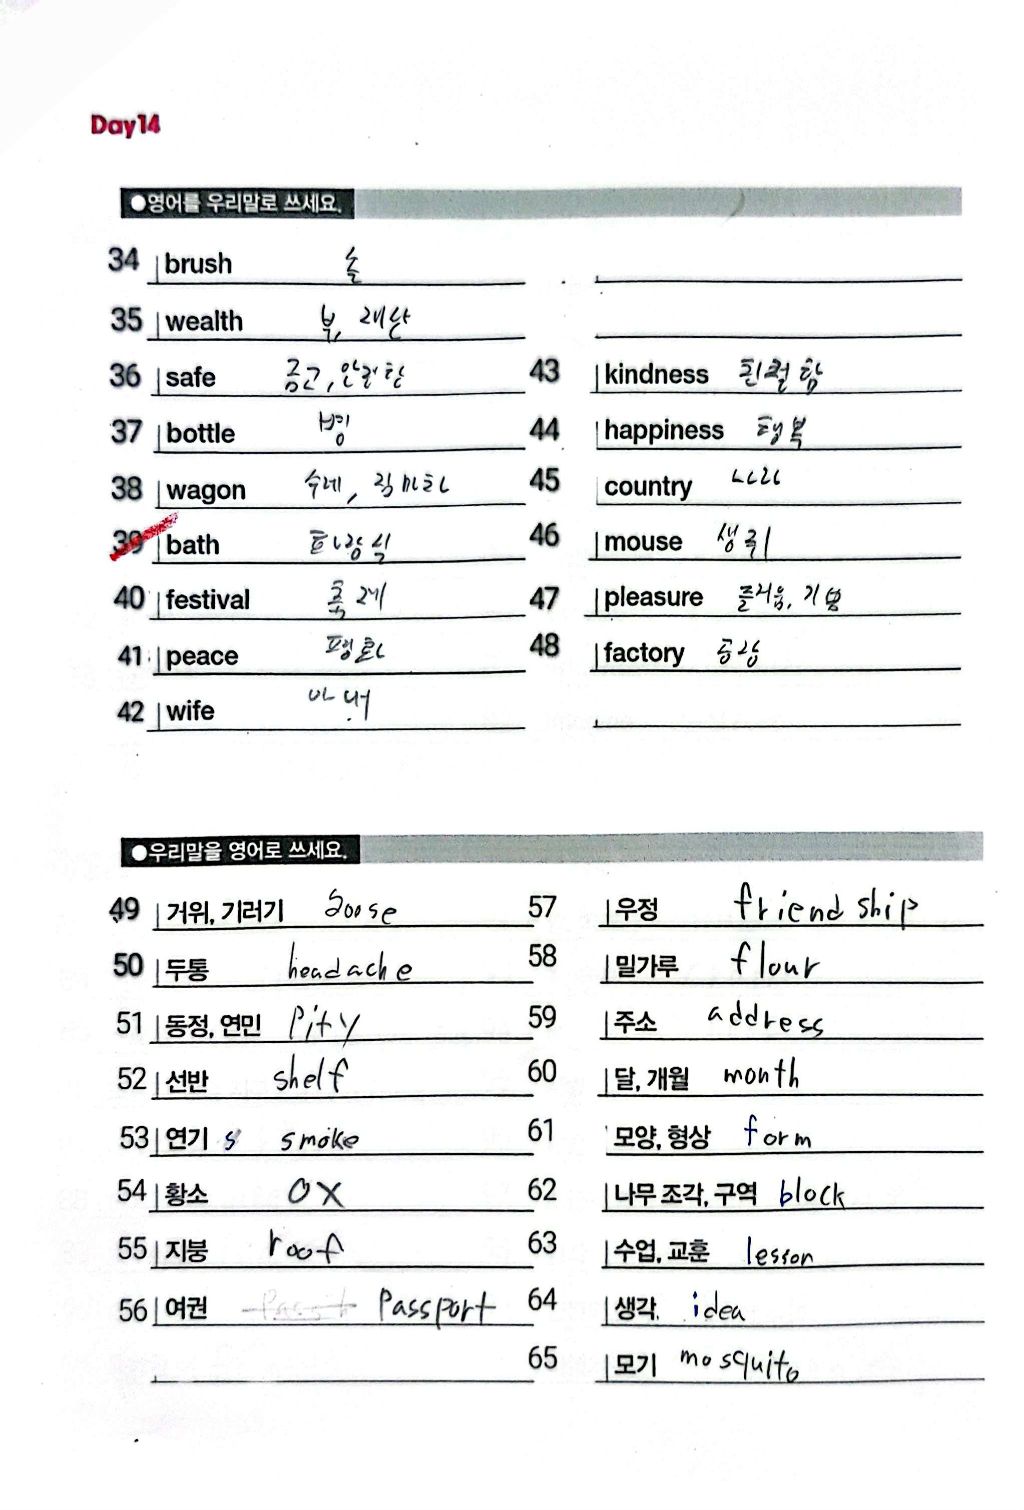 Day14
●영어를 우리말로 쓰세요.
34 brush 솔
35 wealth 부, 재산
36 safe 금고, 안전한
37 bottle 병
38 wagon 수레, 짐마차
39 bath
40 festival 축제
41 peace 평화
42 wife 아내
43 kindness 친절함
44 happiness 행복
45 country 나라
46 mouse 생쥐
47 pleasure 즐거움, 기쁨
48 factory 공장
●우리말을 영어로 쓰세요.
49 거위, 기러기 goose
50 두통 headache
51 동정, 연민 Pity
52 선반 shelf
53 연기 s smoke
54 황소 OX
55 지붕 roof
56 여권 Passport
57 우정 friend ship
58 밀가루 flour
59 주소 address
60 달, 개월 month
61 모양, 형상 form
62 나무 조각, 구역 block
63 수업, 교훈 lesson
64 생각 idea
65 모기 mosquito